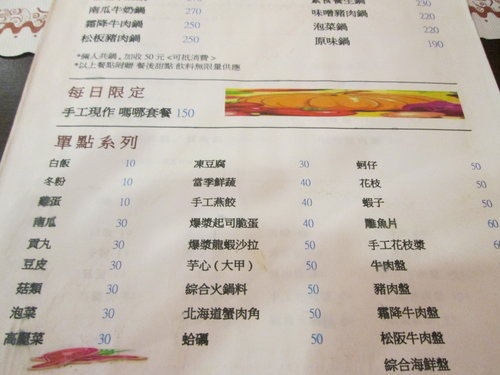 南瓜牛奶鍋 270
霜降牛肉鍋 250
松板豬肉鍋 250
230
味噌豬肉鍋 220
泡菜鍋 220
原味鍋 190
*兩人共鍋, 加收 50 元 <可抵消費>
*以上餐點附贈 餐後甜點 飲料無限量供應
每日限定
手工現作 嗎哪套餐 150
單點系列
白飯 10
冬粉 10
雞蛋 10
南瓜 30
貢丸 30
豆皮 30
菇類 30
泡菜 30
高麗菜 30
凍豆腐 30
當季鮮蔬 40
手工燕餃 40
爆漿起司脆蛋 40
爆漿龍蝦沙拉 50
芋心 (大甲) 50
綜合火鍋料 50
北海道蟹肉角 50
蛤蠣 50
蚵仔 50
花枝 50
蝦子 50
鵰魚片 60
手工花枝漿 60
牛肉盤
豬肉盤
霜降牛肉盤
松阪牛肉盤
綜合海鮮盤